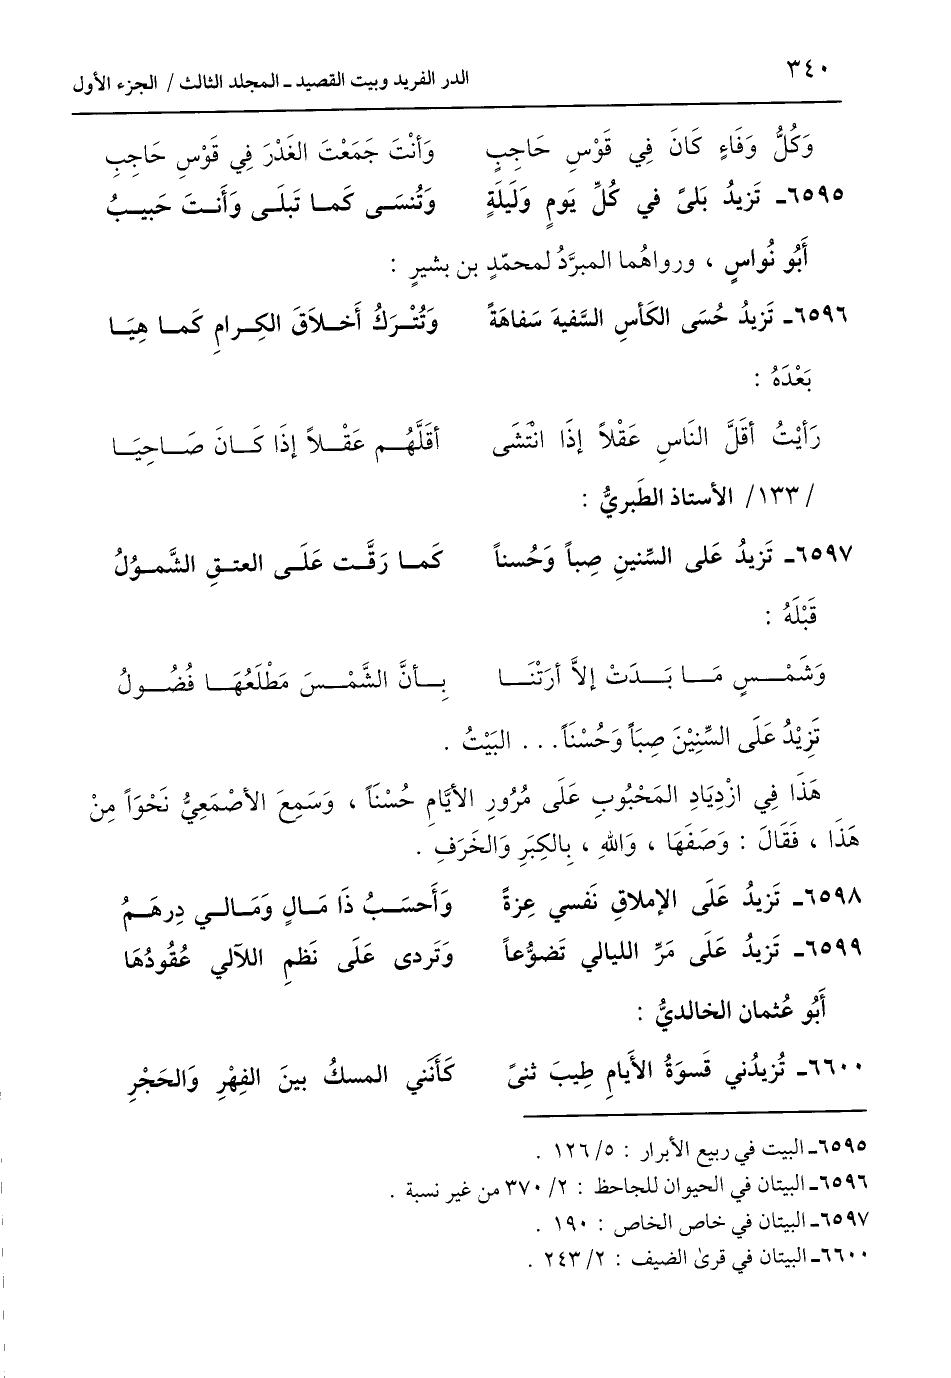 ٣٤٠ الدر الفريد وبيت القصيد ـ المجلد الثالث / الجزء الأول
وَكُلُّ وَفَاءٍ كَانَ فِي قَوْسِ حَاجِبٍ وَأنْتَ جَمَعْتَ الغَدْرَ فِي قَوْسِ حَاجِبِ
٦٥٩٥ـ تَزيدُ بَلىً في كُلِّ يَومٍ وَلَيلَةٍ وَتُنسَى كَمـا تَبلَـى وَأَنـتَ حَبيـبُ
أَبُو نُواسٍ ، ورواهُما المبرَّدُ لمحمّدٍ بن بشيرٍ :
٦٥٩٦ـ تَزيدُ حُسَى الكَأسِ السَّفيهَ سَفاهَةً وَتُتْـرَكُ أَخـلاَقَ الكِـرامِ كَمـا هِيَـا
بَعْدَهُ :
رَأَيْتُ أقَلَّ النَاسِ عَقْلاً إذَا انْتَشَى أقَلَّهُـم عَقْـلاً إذَا كَـانَ صَـاحِيَـا
/ ١٣٣/ الأستاذ الطَبريُّ :
٦٥٩٧ـ تَزيدُ عَلى السِّنينِ صِباً وَحُسناً كَمـا رَقَّـت عَلَـى العتـقِ الشَّمـولُ
قَبْلَهُ :
وَشَمْـسٍ مَـا بَـدَتْ إلاَّ أرَتْنَـا بِـأنَّ الشَّمْـسَ مَطْلَعُهَـا فُضُـولُ
تَزِيْدُ عَلَى السِّنِيْنَ صِبَاً وَحُسْنَاً . . . البَيْتُ .
هَذَا فِي ازْدِيَادِ المَحْبُوبِ عَلَى مُرُورِ الأيَّامِ حُسْنَاً ، وَسَمِعَ الأصْمَعِيُّ نَحْوَاً مِنْ
هَذَا ، فَقَالَ : وَصَفَهَا ، وَاللهِ ، بِالكِبَرِ وَالخَرَفِ .
٦٥٩٨ـ تَزيدُ عَلَى الإملاقِ نَفسي عِزةً وَأَحسَـبُ ذَا مَـالٍ وَمَالـي دِرهَـمُ
٦٥٩٩ـ تَزيدُ عَلَى مَرِّ الليالي تَضوُّعاً وَتَردى عَلَى نَظمِ اللآلي عُقُودُهَا
أَبُو عُثمان الخالديُّ :
٦٦٠٠ـ تُزيدُني قَسوَةُ الأيامِ طِيبَ ثنىً كَأَنَني المسكُ بينَ الفِهْرِ وَالحَجْرِ
٦٥٩٥ـ البيت في ربيع الأبرار : ٥/ ١٢٦ .
٦٥٩٦ـ البيتان في الحيوان للجاحظ : ٢/ ٣٧٠ من غير نسبة .
٦٥٩٧ـ البيتان في خاص الخاص : ١٩٠ .
٦٦٠٠ـ البيتان في قرى الضيف : ٢/ ٢٤٣ .